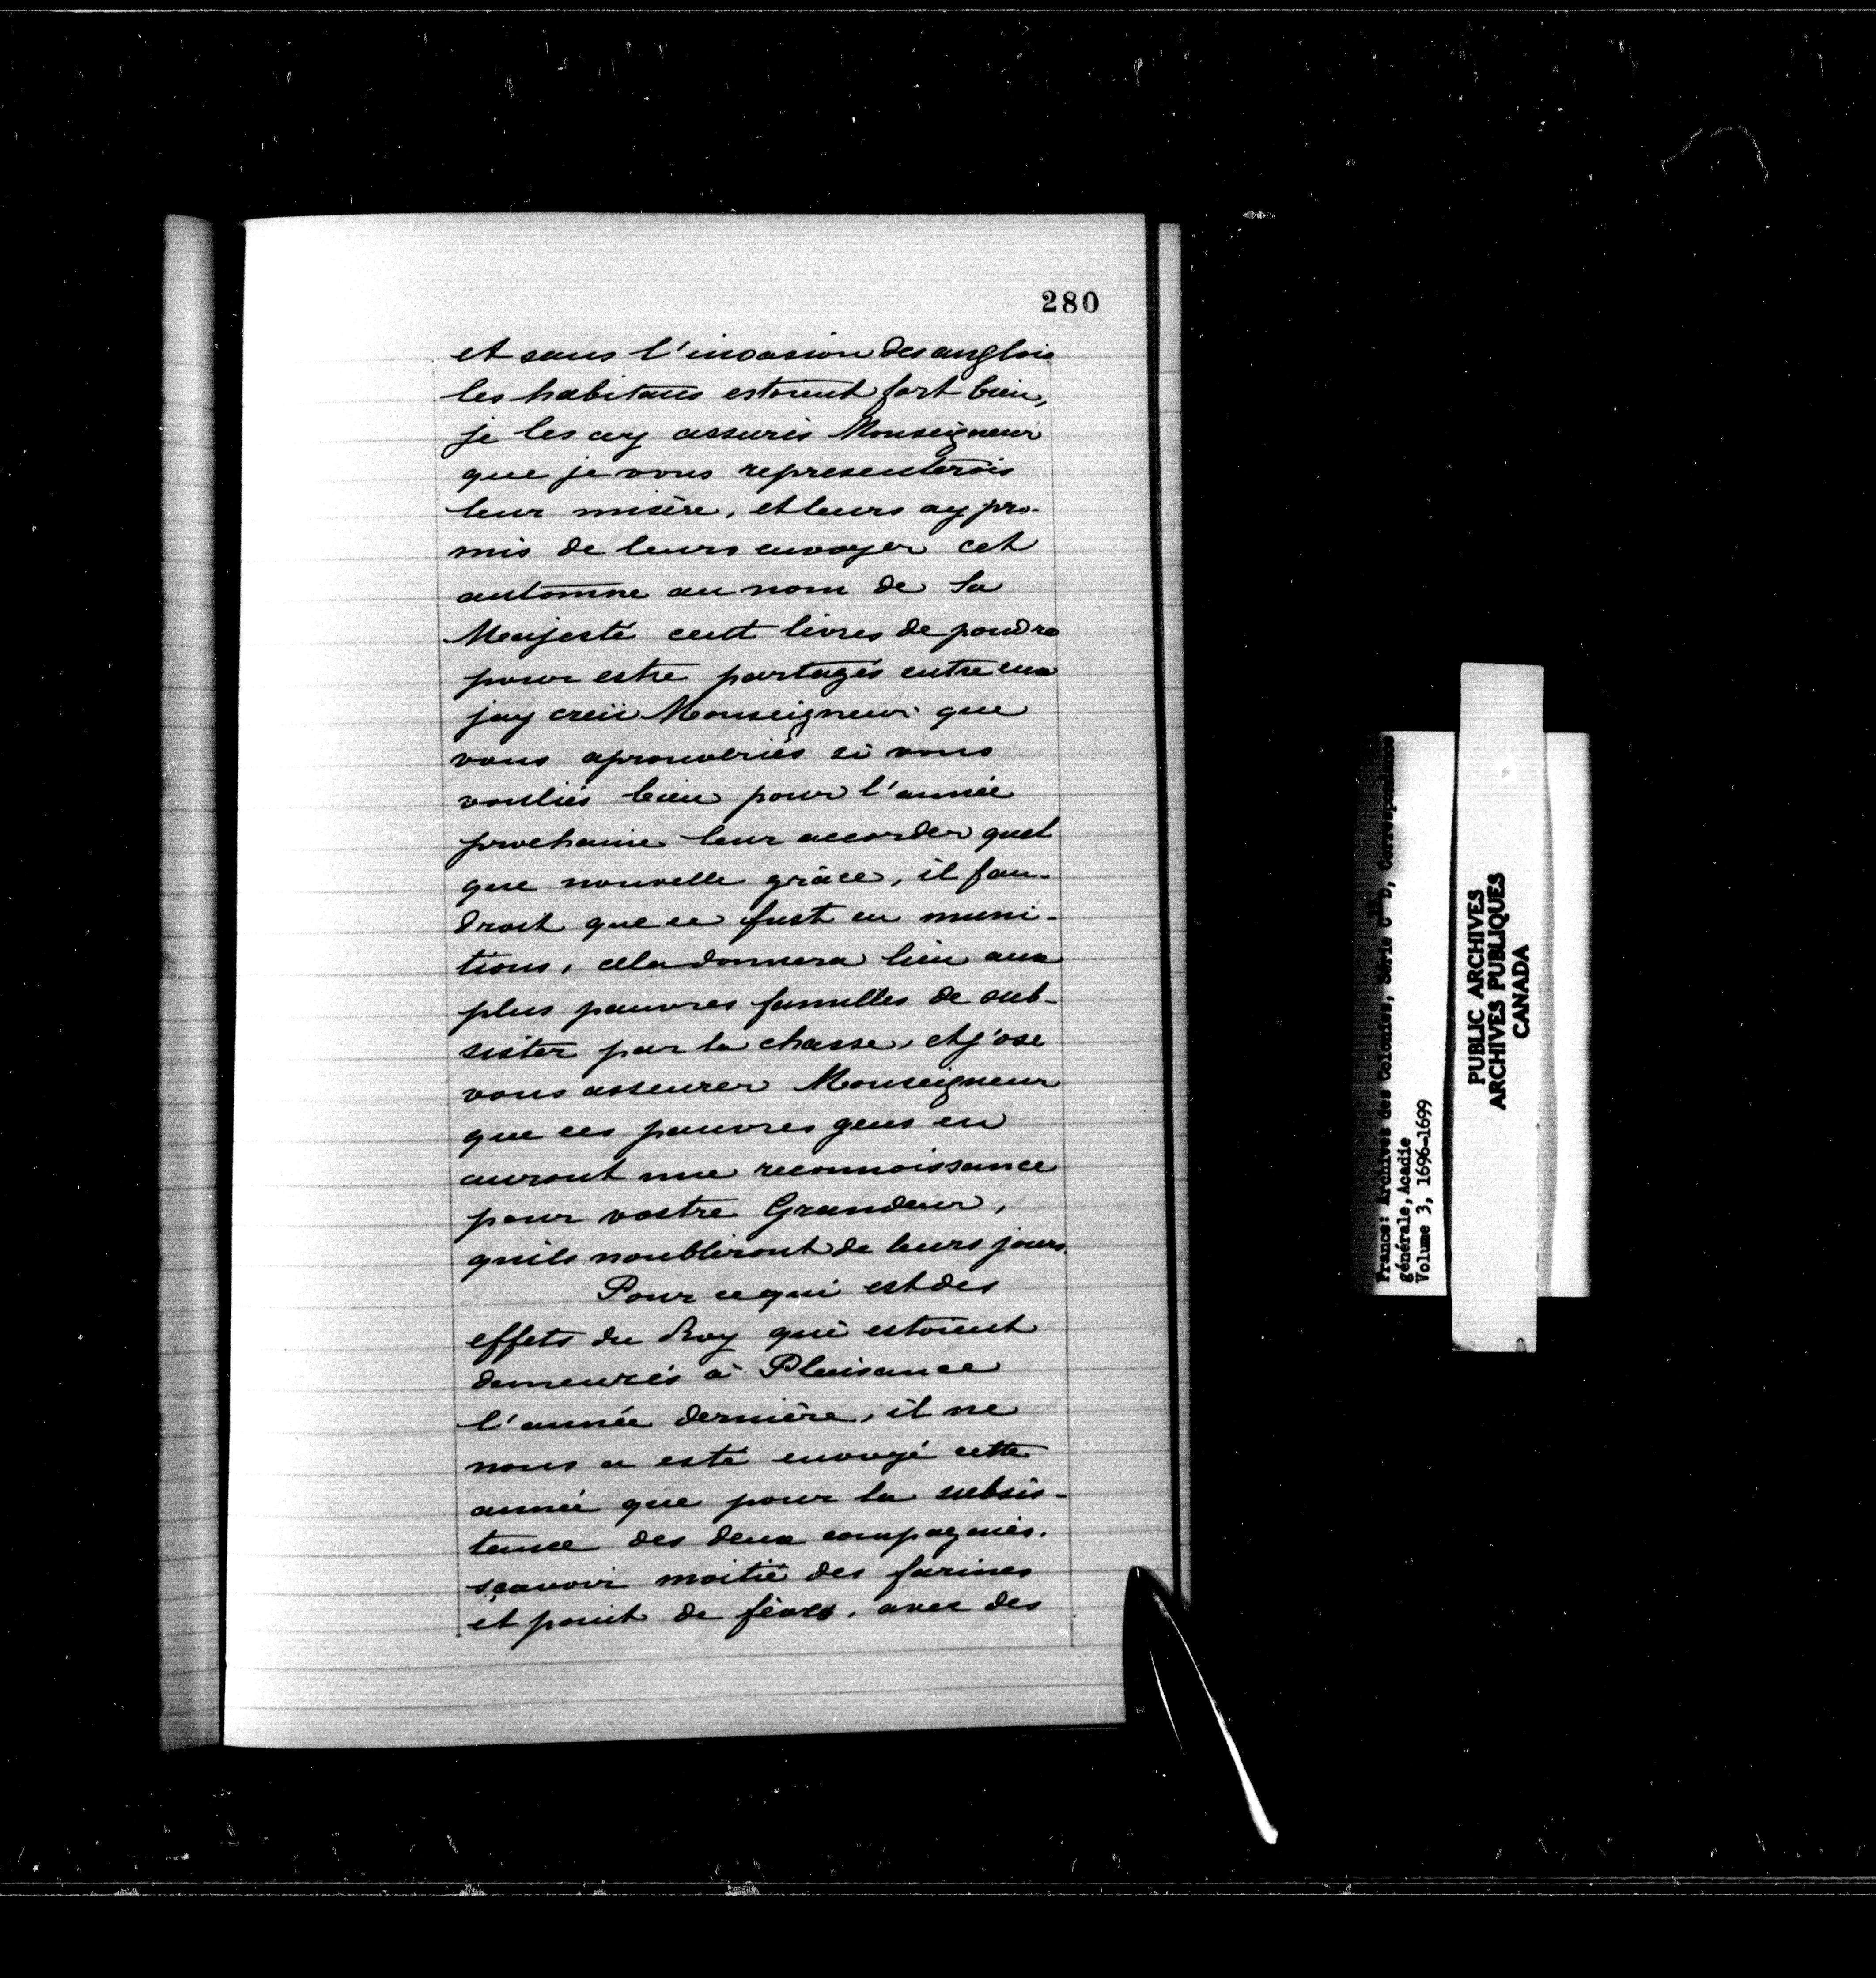 280
et sans l'invasion des anglois
les habitans estoient fort bien,
je les ay assurés Monseigneur
que je vous representerois
leur misère, et leurs ay pro-
mis de leurs envoyer cet
automne au nom de Sa
Majesté cent livres de poudre
pour estre partagés entre eux
jay creü Monseigneur que
vous aprouveriés si vous
vouliés bien pour l'année
prochaine leur accorder quel
que nouvelle grâce, il fau-
droit que ce fust en muni-
tions, cela donnera lieu aux
plus pauvres familles de sub-
sister par la chasse, et j'ose
vous asseurer Monseigneur
que ces pauvres gens en
auront une reconnoissance
pour vostre Grandeur,
quils noubliront de leurs jours.
Pour ce qui est des
effets du Roy qui estoient
demeurés à Plaisance
l'année dernière, il ne
nous a esté envoyé cette
année que pour la subsis-
tance des deux compagnies.
sçavoir moitié des farines
et point de fèves, avec des
France: Archives des Colonies, Série C11D, Correspondance
générale, Acadie
Volume 3, 1696-1699
PUBLIC ARCHIVES
ARCHIVES PUBLIQUES
CANADA